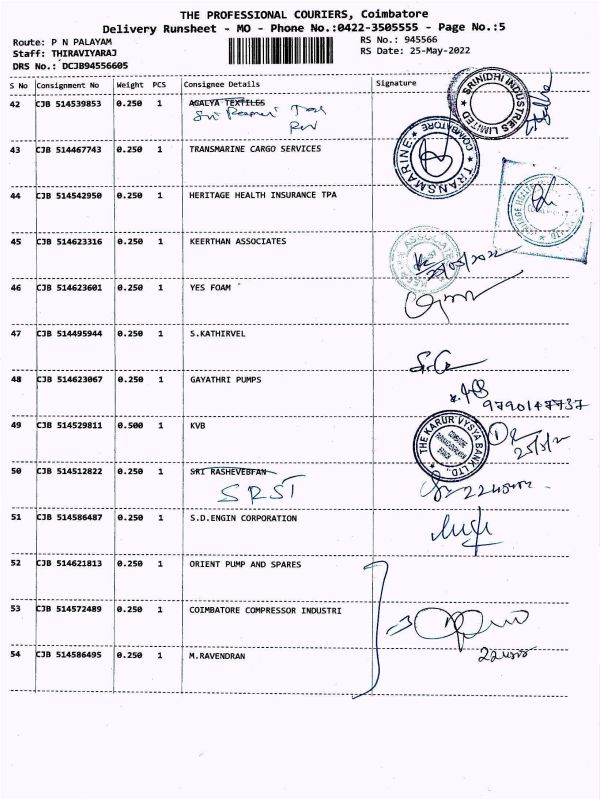 THE PROFESSIONAL COURIERS, Coimbatore
Delivery Runsheet - MO - Phone No.:0422-3505555 - Page No.:5
Route: P N PALAYAM RS No.: 945566
Staff: THIRAVIYARAJ RS Date: 25-May-2022
DRS No.: DCJB94556605
S No Consignment No Weight PCS Consignee Details Signature
42 CJB 514539853 0.250 1 AGALYA TEXTILES
SRINIDHI INDUSTRIES LIMITED
43 CJB 514467743 0.250 1 TRANSMARINE CARGO SERVICES
TRANSMARINE COIMBATORE
44 CJB 514542950 0.250 1 HERITAGE HEALTH INSURANCE TPA
45 CJB 514623316 0.250 1 KEERTHAN ASSOCIATES
25/05/2022
46 CJB 514623601 0.250 1 YES FOAM
47 CJB 514495944 0.250 1 S.KATHIRVEL
48 CJB 514623067 0.250 1 GAYATHRI PUMPS
9790147737
49 CJB 514529811 0.500 1 KVB
THE KARUR VYSYA BANK LTD.
50 CJB 514512822 0.250 1 SRI RASHEVEBFAN
SRST
51 CJB 514586487 0.250 1 S.D.ENGIN CORPORATION
52 CJB 514621813 0.250 1 ORIENT PUMP AND SPARES
53 CJB 514572489 0.250 1 COIMBATORE COMPRESSOR INDUSTRI
54 CJB 514586495 0.250 1 M.RAVENDRAN